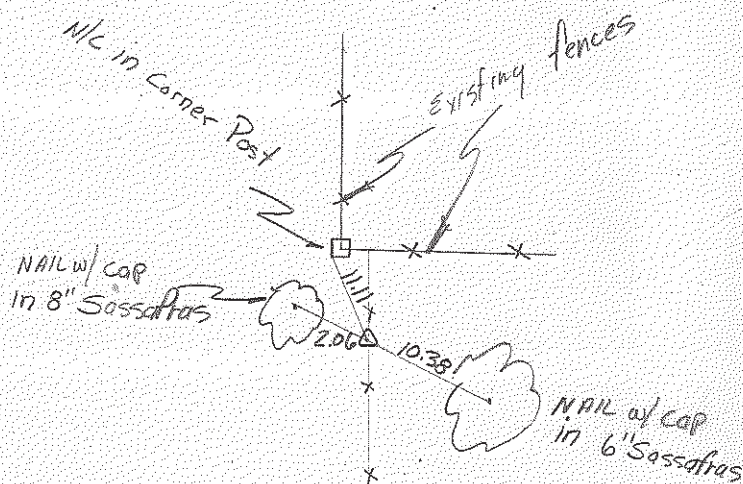 N/C in Corner Post
Existing fences
11.11
NAIL w/ cap
in 8" Sassafras
2.06
10.38
NAIL w/ cap
in 6" Sassafras